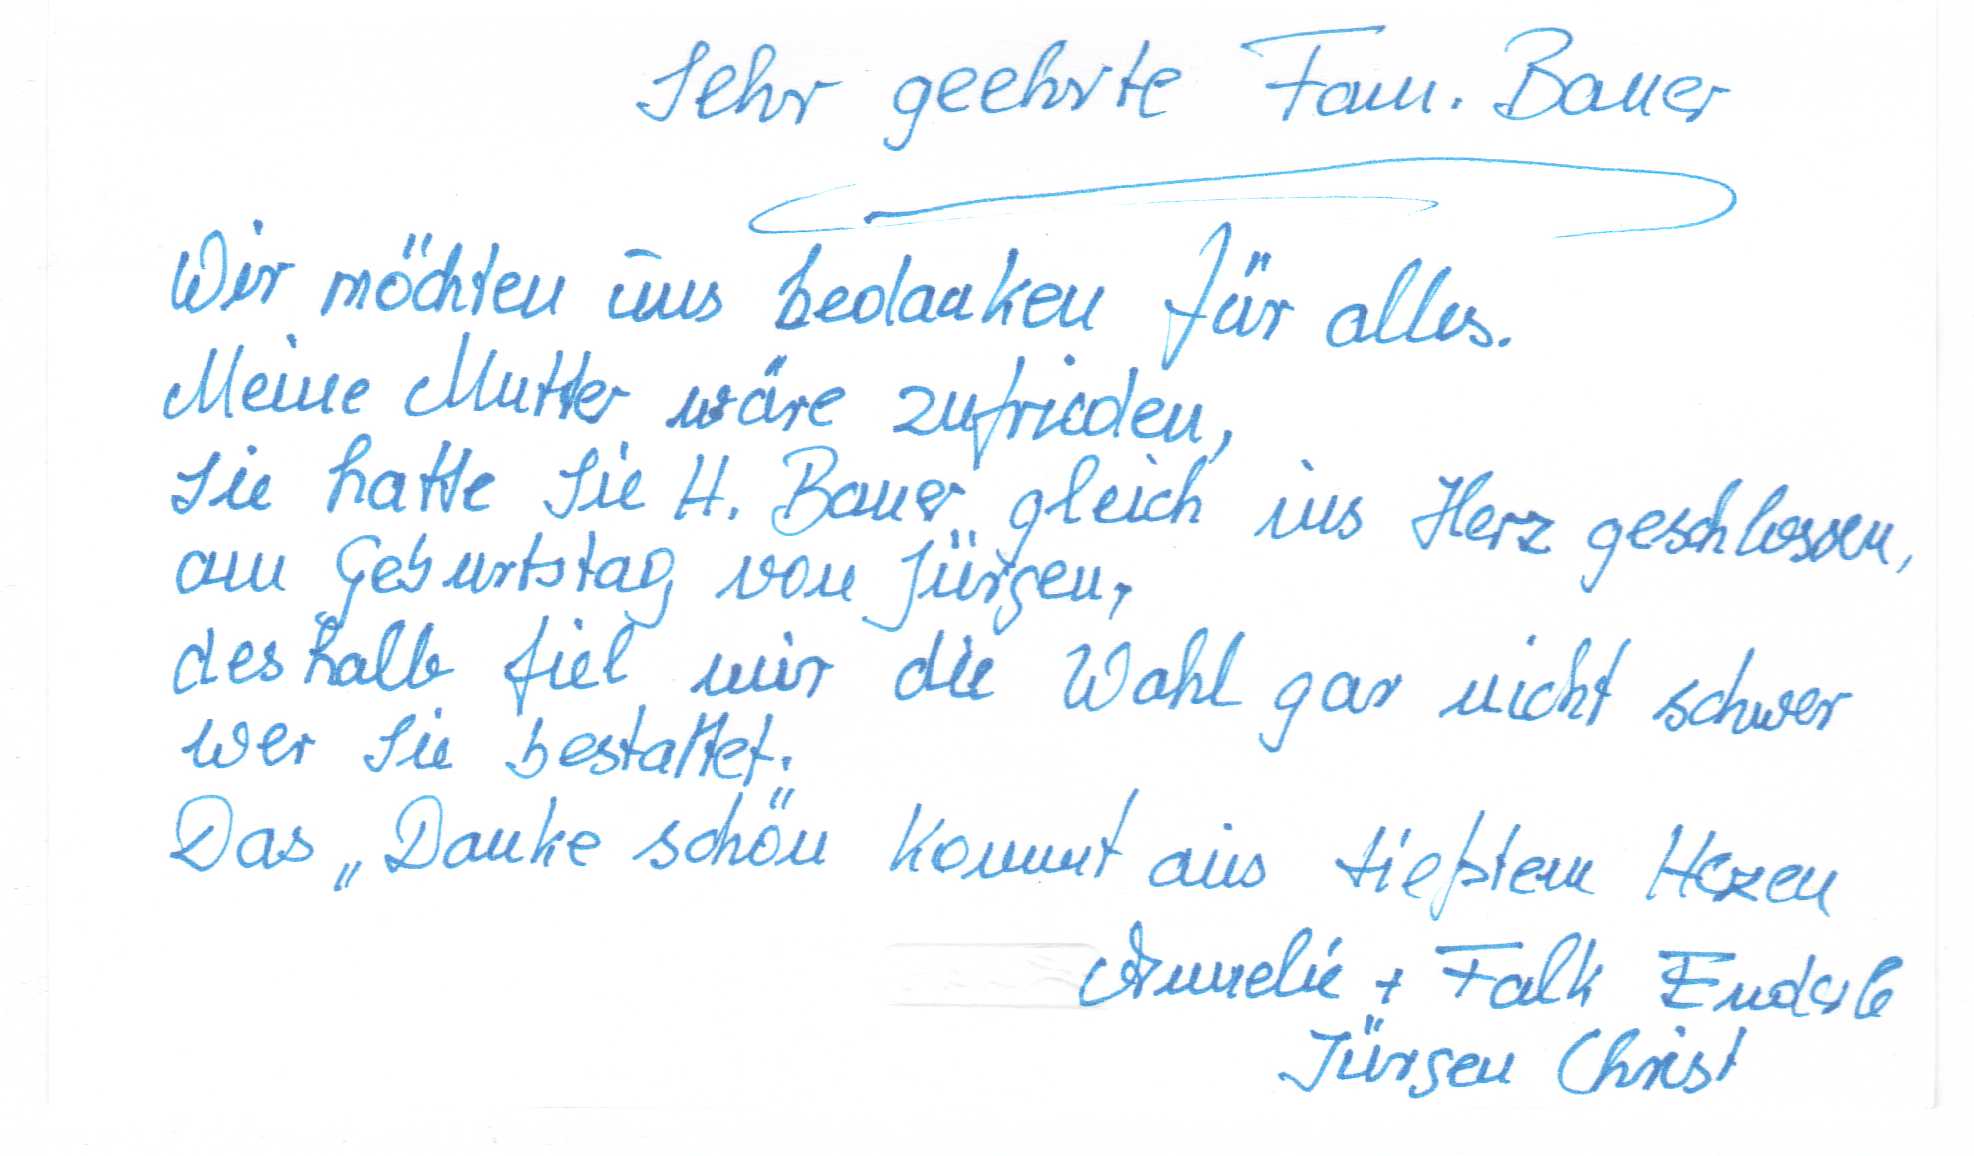 Sehr geehrte Fam. Bauer
Wir möchten uns bedanken für alles.
Meine Mutter wäre zufrieden,
Sie hatte Sie H. Bauer gleich ins Herz geschlossen,
am Geburtstag von Jürgen,
deshalb fiel mir die Wahl gar nicht schwer
wer Sie bestattet.
Das „Danke schön kommt aus tiefstem Herzen
+ Falk Enderle
Jürgen Christ